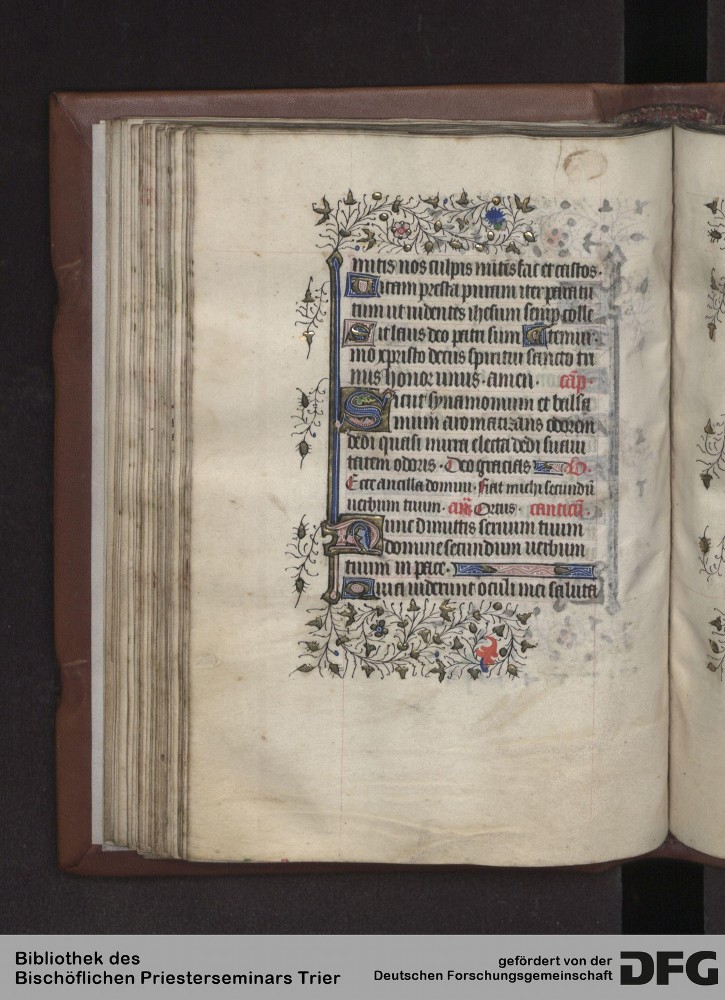 mitis nos culpis mites fac et castos.
Uitam presta puram iter para tu
tum ut uidentes ihesum semp colle
Sit laus deo patri sum Eternu
mo xpristo decus spiritui sancto tri
nus honor unus. amen. cap.
Sicut synamomum et balsa
mum aromatizans odorem
dedi quasi mirra electa dedi suaui
tatem odoris. Deo gracias
Ecce ancilla domini. fiat michi secundu
uerbum tuum. Ortus. canticu.
Nunc dimittis seruum tuum
domine secundum uerbum
tuum in pace.
Quia uiderunt oculi mei saluta
Bibliothek des
Bischöflichen Priesterseminars Trier
gefördert von der
Deutschen Forschungsgemeinschaft
DFG